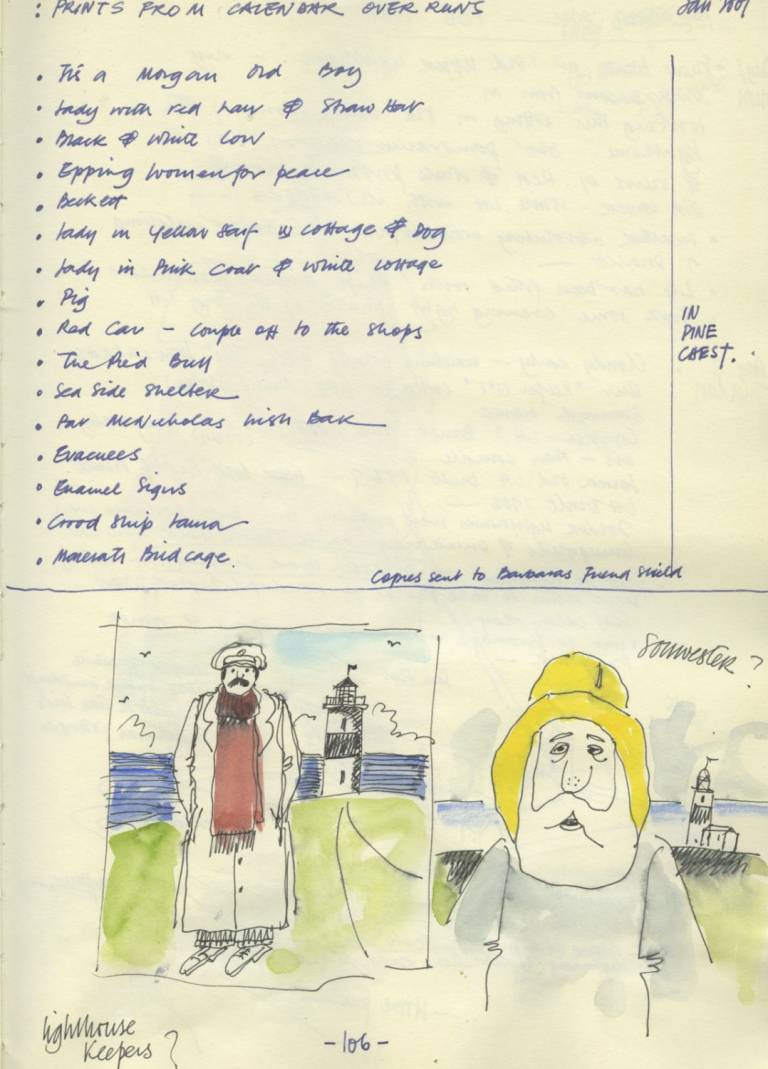 : PRINTS FROM CALENDAR OVER RUNS
Jan
• Tis a Morgan Old Boy
• Lady with red hair & Straw Hat
• Black & White Cow
• Epping Women for peace
• Beckett
• Lady in Yellow Scarf w cottage & Dog
• Lady in Pink Coat & White Cottage
• Pig
• Red Car – Couple off to the shops
• The Pied Bull
• Sea Side Shelter
• Pat McNicholas Irish Bar
• Evacuees
• Enamel Signs
• Good Ship Laura
• Maserati Birdcage.
IN
PINE
CHEST.
Copies sent to Barbaras Friend
Souwester ?
lighthouse
Keepers ?
-106-